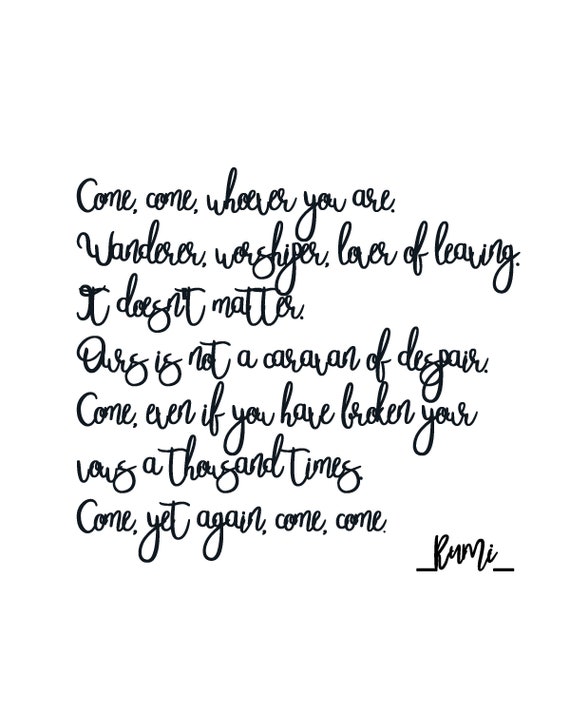 Come, come, whoever you are.
Wanderer, worshiper, lover of leaving.
It doesn't matter.
Ours is not a caravan of despair.
Come, even if you have broken your
vows a thousand times.
Come, yet again, come, come.
_Rumi_